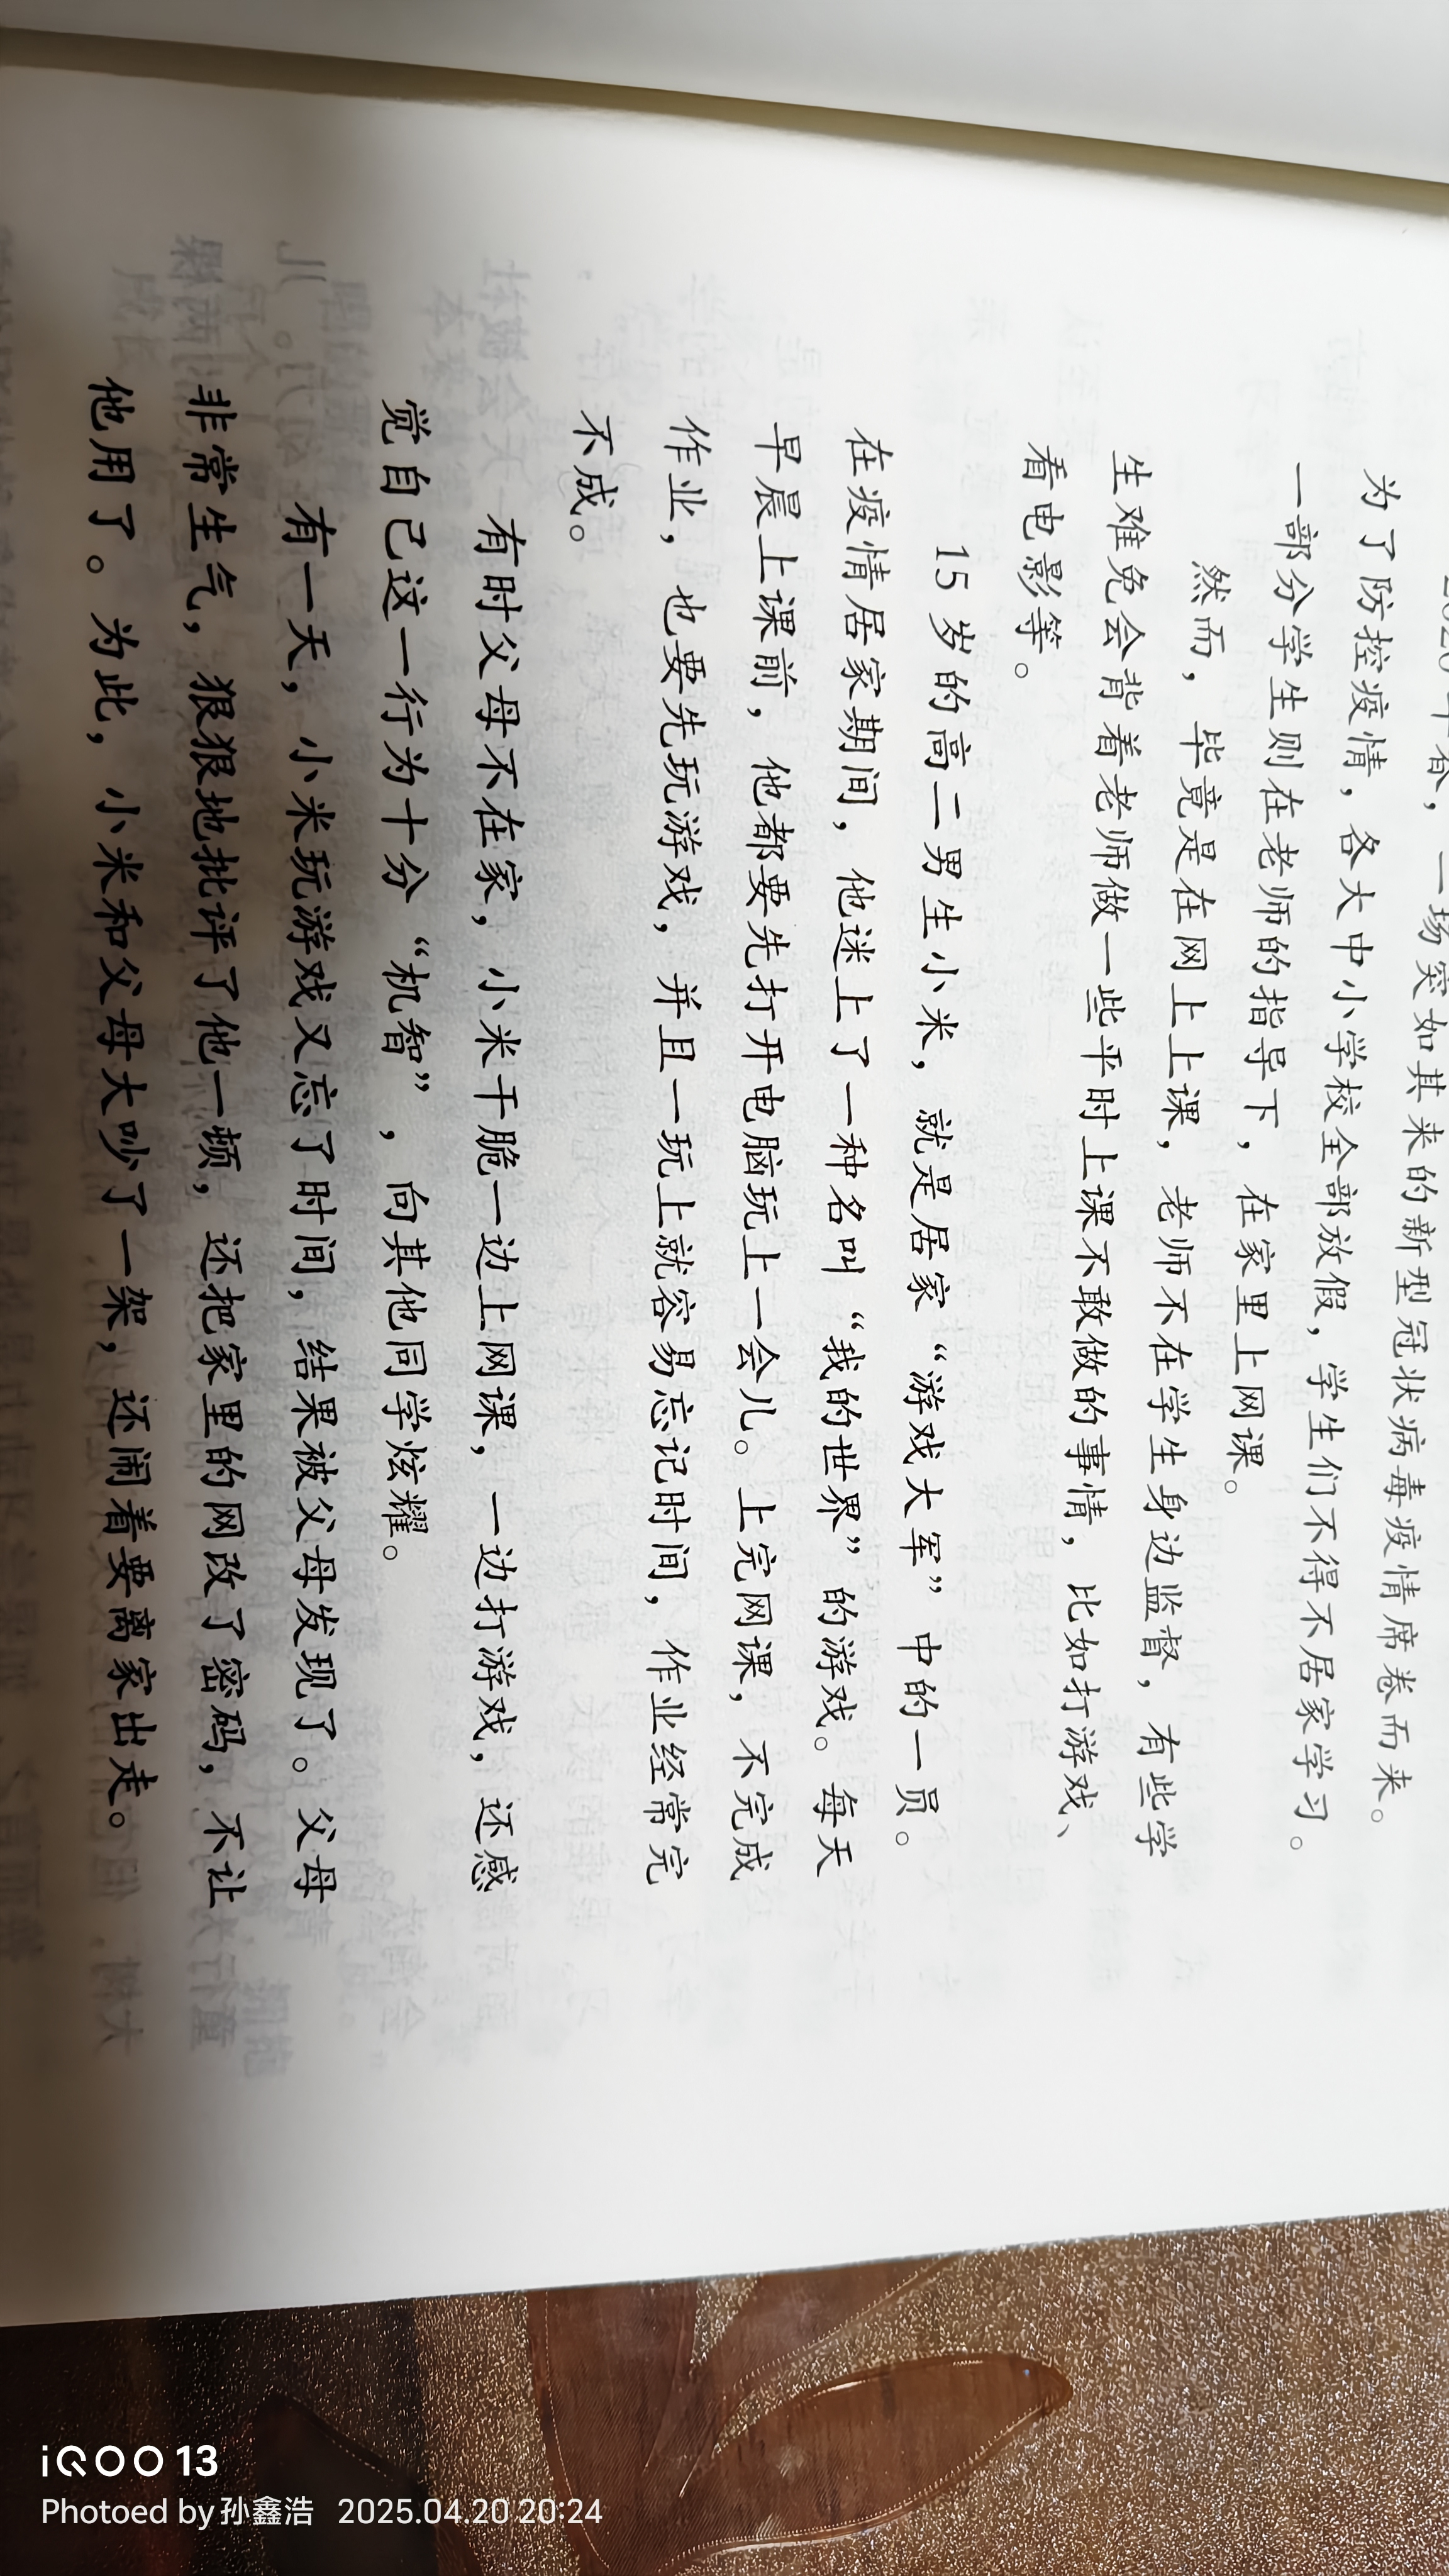 2020年春，一场突如其来的新型冠状病毒疫情席卷而来。
为了防控疫情，各大中小学校全部放假，学生们不得不居家学习。
一部分学生则在老师的指导下，在家里上网课。
然而，毕竟是在网上上课，老师不在学生身边监督，有些学
生难免会背着老师做一些平时上课不敢做的事情，比如打游戏、
看电影等。
15岁的高二男生小米，就是居家“游戏大军”中的一员。
在疫情居家期间，他迷上了一种名叫“我的世界”的游戏。每天
早晨上课前，他都要先打开电脑玩上一会儿。上完网课，不完成
作业，也要先玩游戏，并且一玩上就容易忘记时间，作业经常完
不成。
有时父母不在家，小米干脆一边上网课，一边打游戏，还感
觉自己这一行为十分“机智”，向其他同学炫耀。
有一天，小米玩游戏又忘了时间，结果被父母发现了。父母
非常生气，狠狠地批评了他一顿，还把家里的网改了密码，不让
他用了。为此，小米和父母大吵了一架，还闹着要离家出走。
iQOO 13
Photoed by 孙鑫浩 2025.04.20 20:24